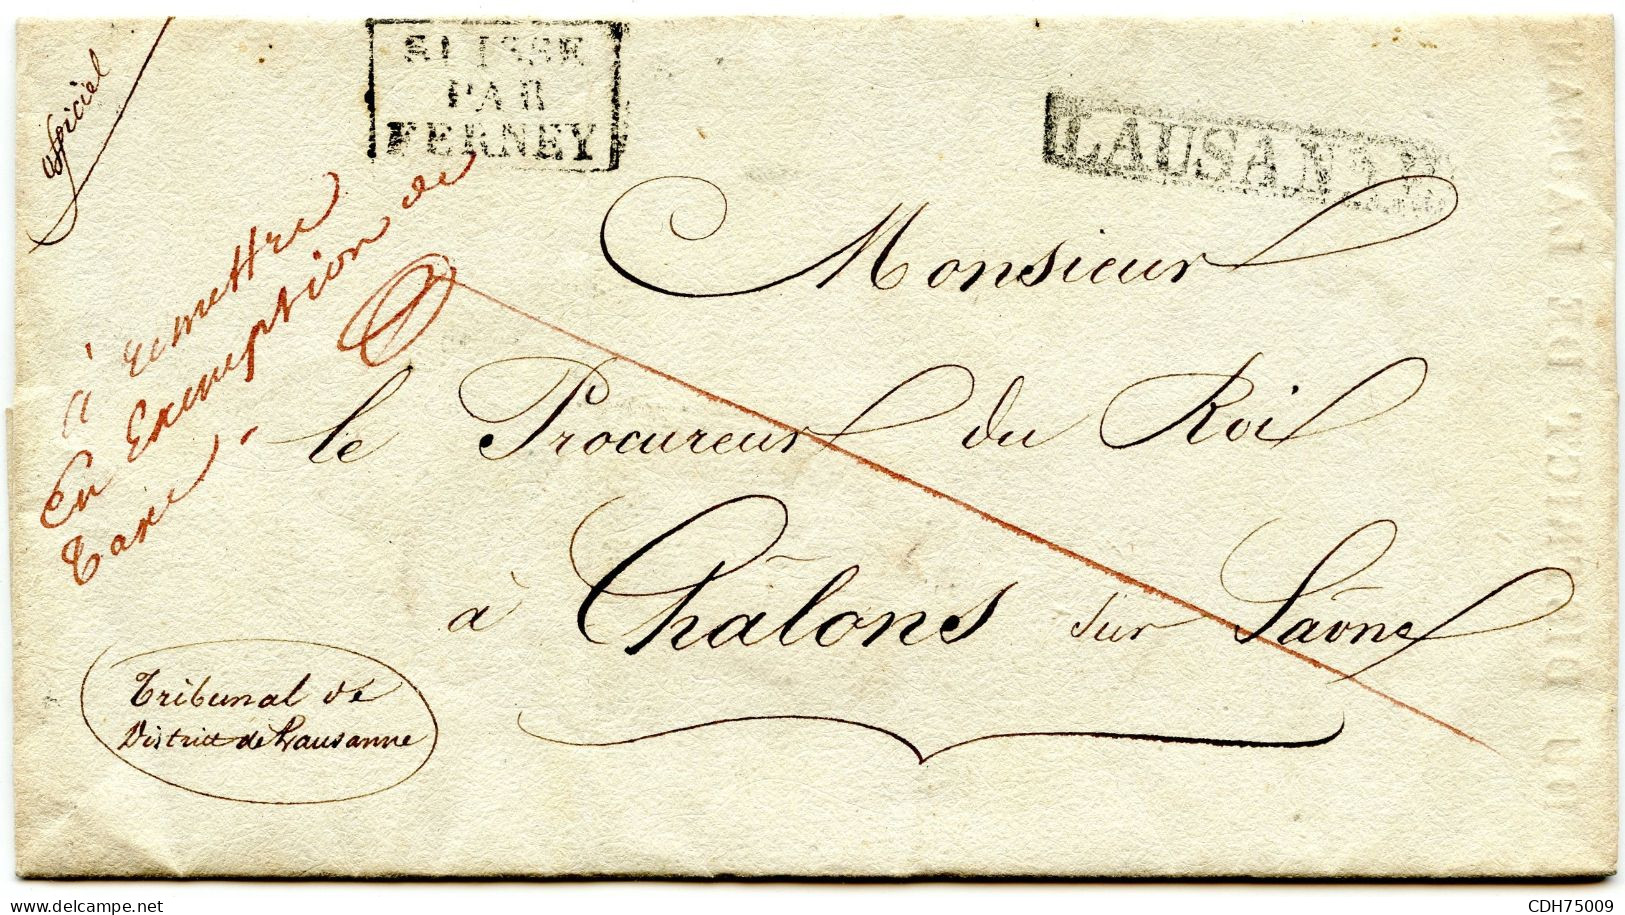 officiel
SUISSE
PAR
FERNEY
LAUSANNE
à remettre
en exemption de
taxe.
Monsieur
le Procureur du Roi
à Châlons sur Saône
Tribunal de
District de Lausanne
delcampe.net
CDH75009